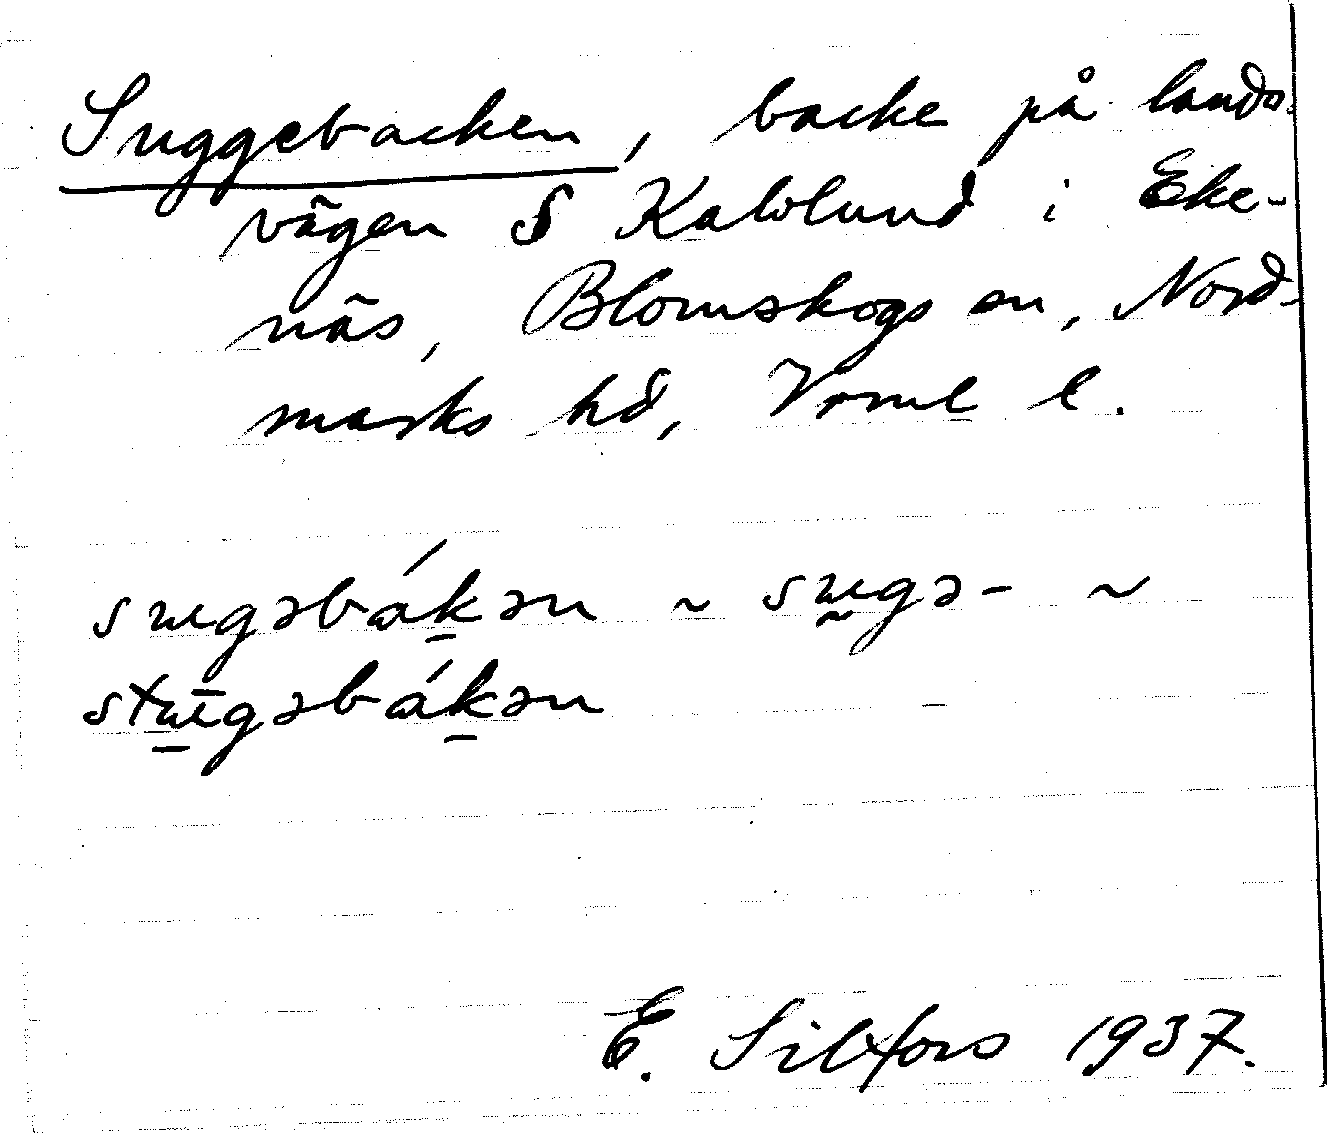 Suggebacken, backe på lands-
vägen S Kalvlund i Eke-
näs, Blomskogs sn, Nord-
marks hd, Vrml l.
sugəbákən ~ sugə- ~
stugəbákən
E. Silfors 1937.